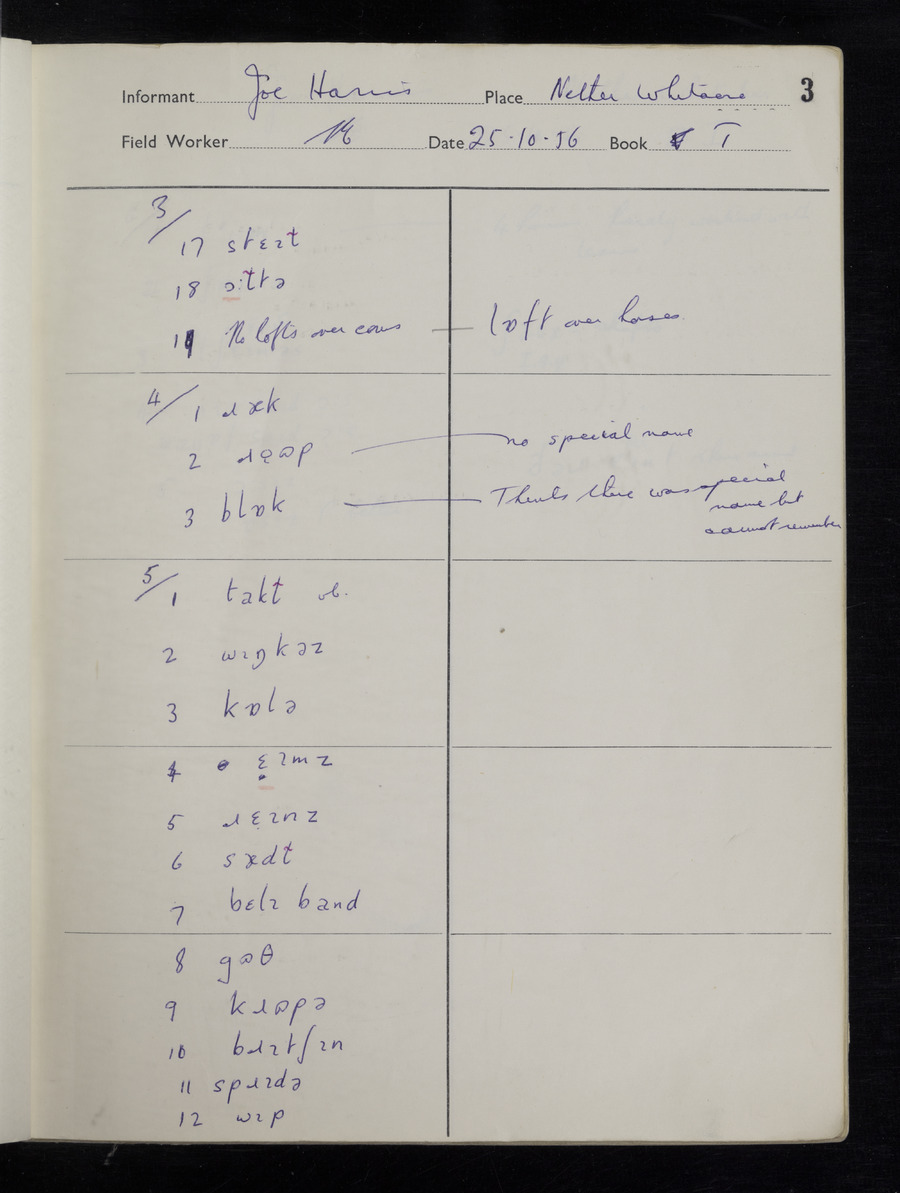 Informant Joe Harris Place Nether Whitacre 3
Field Worker Date 25.10.56 Book I
3/
17 stɛɪt
18 ɔ:ltə
19 No lofts over cows — lɒft over horses
4/ 1 ɹæk
2 ɹɔʊp — no special name
3 blɒk — Thinks there was special
name but
cannot remember
5/ 1 takt vb.
2 wɪŋkəz
3 kɒlə
4 ɛɪmz
5 ɹɛɪnz
6 sædt
7 bɛlɪ band
8 gəθ
9 kɹʊpə
10 bɹɪtʃɪn
11 spɹɪdə
12 wɪp